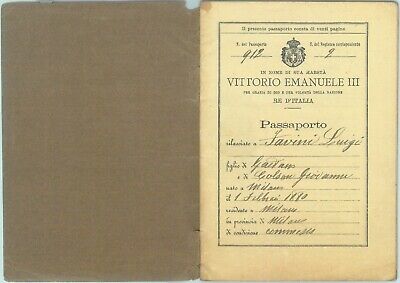 Il presente passaporto consta di venti pagine
N. del Passaporto
N. del Registro corrispondente
912
2
IN NOME DI SUA MAESTÀ
VITTORIO EMANUELE III
PER GRAZIA DI DIO E PER VOLONTÀ DELLA NAZIONE
RE D'ITALIA
Passaporto
rilasciato a Favini Luigi
figlio di Gaetano
e di Colson Giovanna
nato a Milano
il 1 Febbrai 1880
residente a Milano
in provincia di Milano
di condizione commesso